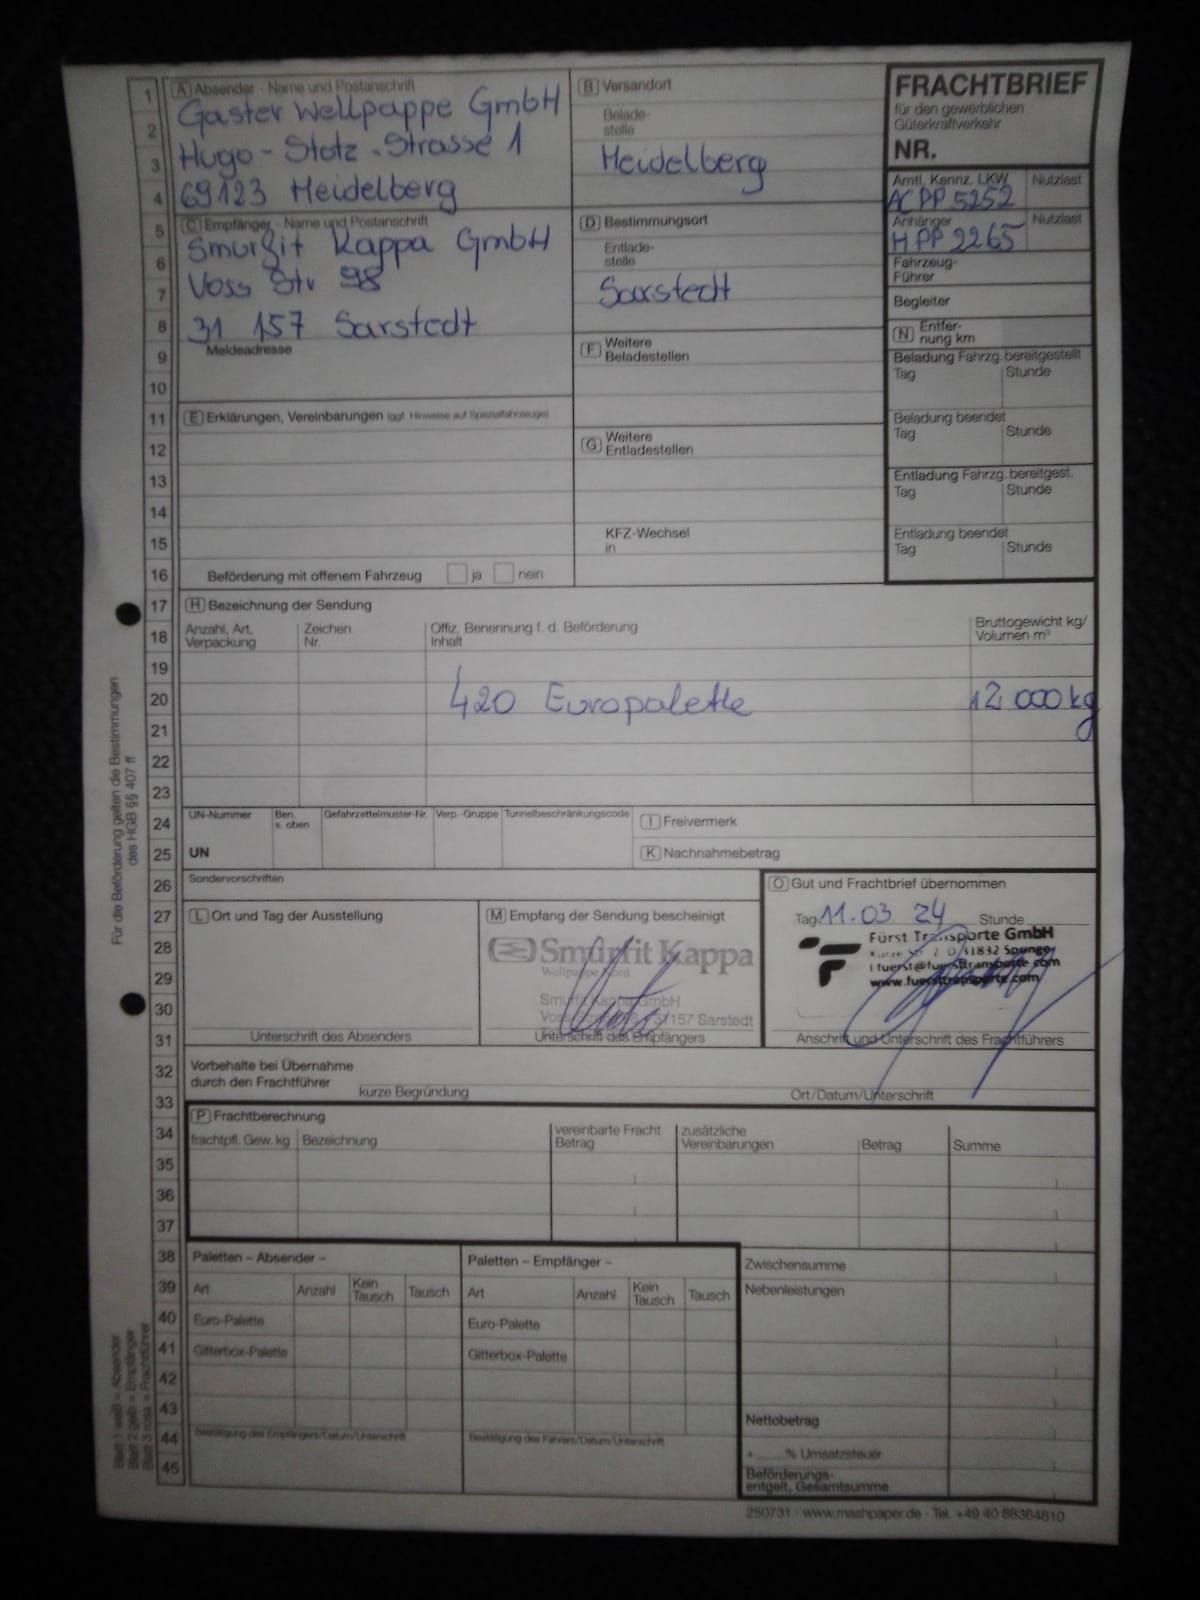 FRACHTBRIEF
für den gewerblichen
Güterkraftverkehr
NR.
1
A Absender - Name und Postanschrift
Gaster Wellpappe GmbH
2
3
Hugo-Stotz-Strasse 1
4
69123 Heidelberg
B Versandort
Belade-
stelle
Heidelberg
Amtl. Kennz. LKW
Nutzlast
AC PP 5252
Anhänger
Nutzlast
H PP 2265
Fahrzeug-
Führer
Begleiter
N Entfer-
nung km
5
C Empfänger - Name und Postanschrift
Smurfit Kappa GmbH
6
7
Voss Str 98
8
31 157 Sarstedt
D Bestimmungsort
Entlade-
stelle
Sarstedt
9
Meldeadresse
10
F Weitere
Beladestellen
Beladung Fahrzg. bereitgestellt
Tag
Stunde
11
E Erklärungen, Vereinbarungen (ggf. Hinweise auf Spezialfahrzeuge)
12
13
14
15
G Weitere
Entladestellen
Beladung beendet
Tag
Stunde
Entladung Fahrzg. bereitgest.
Tag
Stunde
KFZ-Wechsel
in
Entladung beendet
Tag
Stunde
16
Beförderung mit offenem Fahrzeug
ja
nein
17
H Bezeichnung der Sendung
18
Anzahl, Art,
Verpackung
Zeichen
Nr.
Offiz. Benennung f. d. Beförderung
Inhalt
Bruttogewicht kg/
Volumen m³
19
20
420 Europalette
12.000kg
21
22
23
24
UN-Nummer
Ben.
s. oben
Gefahrzettelmuster-Nr.
Verp.-Gruppe
Tunnelbeschränkungscode
I Freivermerk
25
UN
K Nachnahmebetrag
26
Sondervorschriften
O Gut und Frachtbrief übernommen
27
L Ort und Tag der Ausstellung
M Empfang der Sendung bescheinigt
Tag 11.03 24 Stunde
28
Smurfit Kappa
Wellpappe Nord
Fürst Transporte GmbH
31832 Springe
29
fuerst@fuersttransporte.com
www.fuersttransporte.com
30
Smurfit Kappa GmbH
31157 Sarstedt
31
Unterschrift des Absenders
Unterschrift des Empfängers
Anschrift und Unterschrift des Frachtführers
32
Vorbehalte bei Übernahme
durch den Frachtführer
kurze Begründung
Ort/Datum/Unterschrift
33
P Frachtberechnung
34
frachtpfl. Gew. kg
Bezeichnung
vereinbarte Fracht
Betrag
zusätzliche
Vereinbarungen
Betrag
Summe
35
36
37
38
Paletten – Absender –
Paletten – Empfänger –
Zwischensumme
39
Art
Anzahl
Kein
Tausch
Tausch
Art
Anzahl
Kein
Tausch
Tausch
Nebenleistungen
40
Euro-Palette
Euro-Palette
41
Gitterbox-Palette
Gitterbox-Palette
42
43
Nettobetrag
44
Bestätigung des Empfängers/Datum/Unterschrift
Bestätigung des Fahrers/Datum/Unterschrift
+ % Umsatzsteuer
45
Beförderungs-
entgelt, Gesamtsumme
250731 · www.mashpaper.de · Tel. +49 40 88364810
Für die Beförderung gelten die Bestimmungen
des HGB §§ 407 ff
Blatt 1 weiß = Absender
Blatt 2 gelb = Empfänger
Blatt 3 rosa = Frachtführer